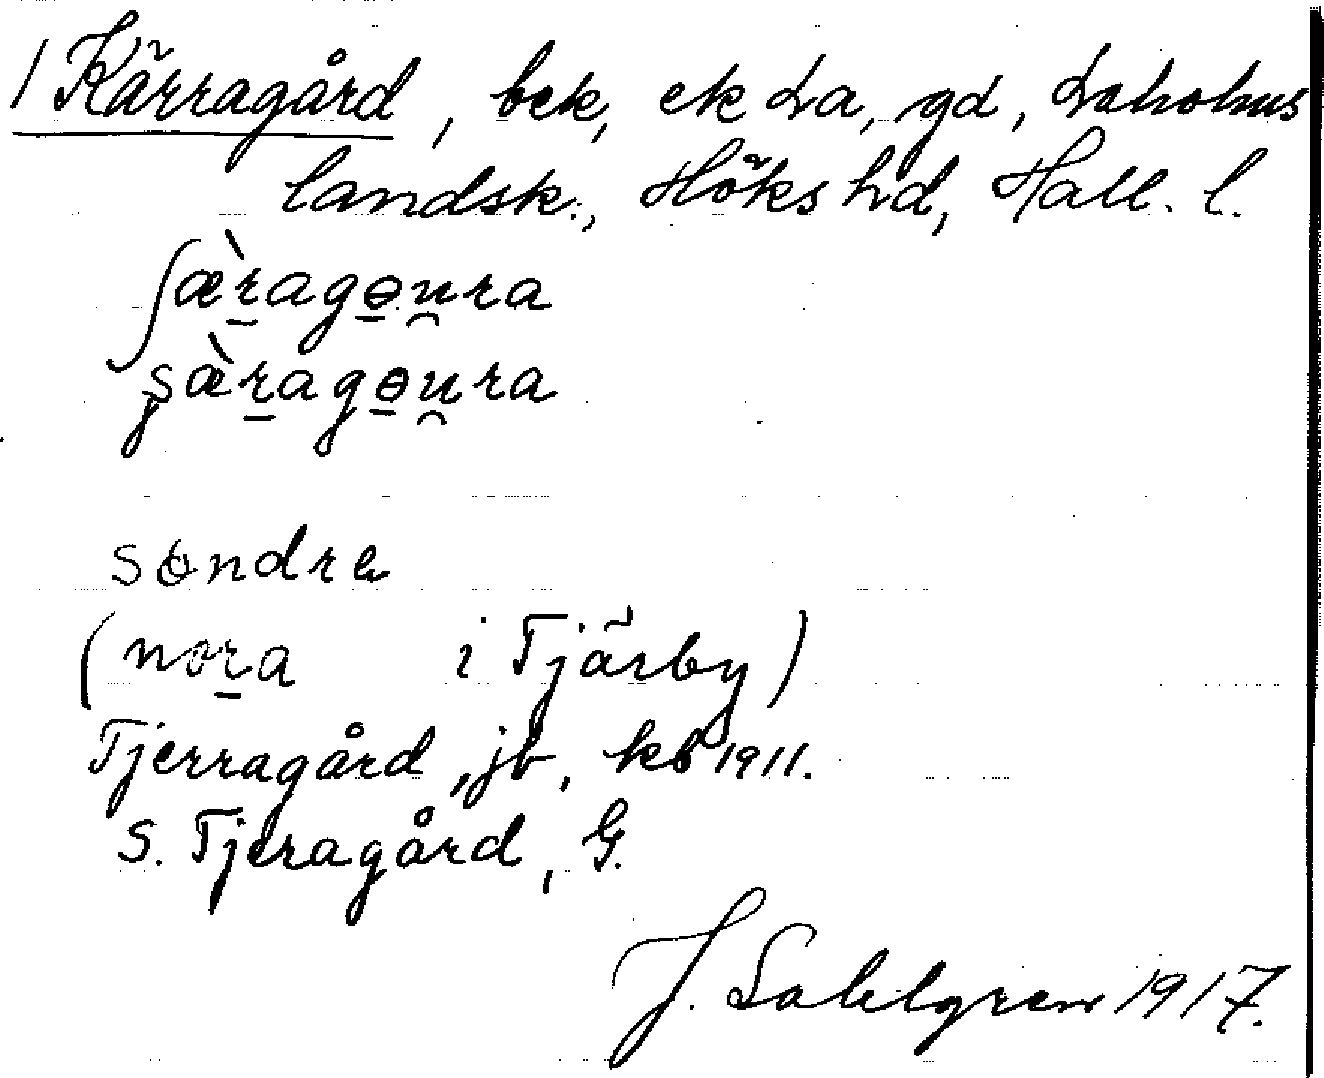 / Kärragård, bek, ek La, gd, Laholms
landsk., Höks hd, Hall. l.
ʃæ̀r̲agɵ̲u̯ra
ʂæ̀r̲agɵ̲u̯ra
sɵndre
(nor̲a i Tjärby)
Tjerragård, jb, kb 1911.
S. Tjeragård, G.
J. Sahlgren 1917.